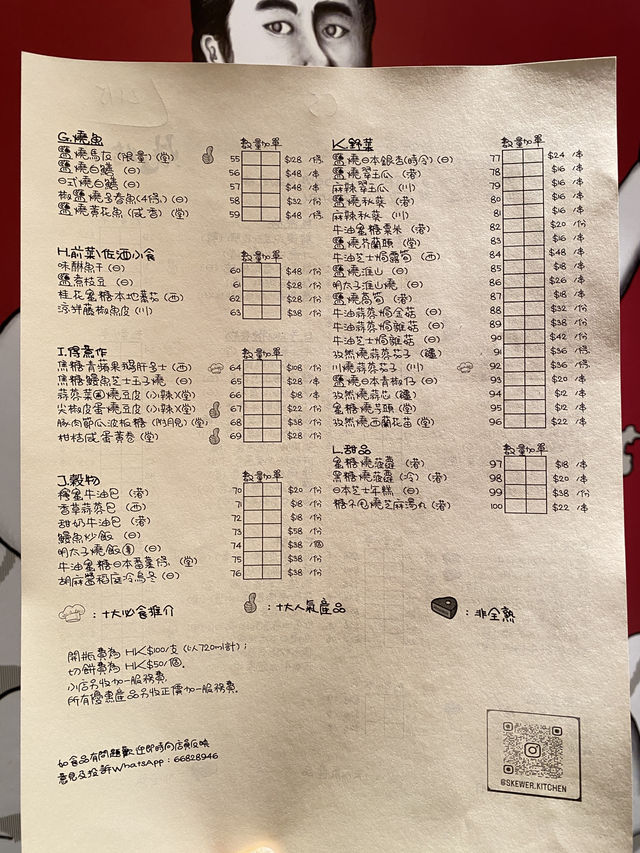 G.燒魚 數量 加單
鹽燒馬友 (限量) (堂) 55 $28 /條
鹽燒白鱔 (日) 56 $48 /串
日式燒白鱔 (日) 57 $48 /串
椒鹽燒多春魚(4條) (日) 58 $32 /份
鹽燒黃花魚 (咸香) (堂) 59 $48 /條
H.前菜\佐酒小食
味醂魚干 (日) 60 $48 /份
鹽煮枝豆 (日) 61 $28 /份
桂花蜜糖本地蕃茄 (西) 62 $28 /份
涼拌藤椒魚皮 (川) 63 $38 /份
I.得意作 數量 加單
焦糖青蘋果鵝肝多士 (西) 64 $108 /份
焦糖鰻魚芝士玉子燒 (日) 65 $28 /份
蒜蓉菜圃燒豆皮 (小辣) (堂) 66 $8 /串
尖椒皮蛋燒豆皮 (小辣) (堂) 67 $22 /份
豚肉節瓜波板糖 (附月見) (堂) 68 $38 /份
柑桔咸蛋黃卷 (堂) 69 $28 /份
J.穀物 數量 加單
檸蜜牛油包 (港) 70 $20 /份
香草蒜蓉包 (西) 71 $18 /份
甜奶牛油包 (港) 72 $18 /份
鰻魚炒飯 (日) 73 $58 /份
明太子燒飯團 (日) 74 $38 /個
牛油蜜糖日本番薯條 (堂) 75 $38 /份
胡麻醬稻庭冷烏冬 (日) 76 $38 /份
K.野菜 數量 加單
鹽燒日本銀杏(時令) (日) 77 $24 /串
鹽燒翠玉瓜 (港) 78 $16 /串
麻辣翠玉瓜 (川) 79 $16 /串
鹽燒秋葵 (港) 80 $16 /串
麻辣秋葵 (川) 81 $16 /串
牛油蜜糖粟米 (港) 82 $20 /份
鹽燒芥蘭頭 (堂) 83 $16 /串
牛油芝士焗露筍 (西) 84 $48 /份
鹽燒淮山 (日) 85 $18 /串
明太子淮山燒 (日) 86 $26 /串
鹽燒萵筍 (港) 87 $18 /串
牛油蒜蓉焗金菇 (日) 88 $38 /份
牛油蒜蓉焗雜菇 (日) 89 $38 /份
牛油芝士焗雜菇 (日) 90 $42 /份
孜然燒蒜蓉茄子 (疆) 91 $36 /份
川燒蒜蓉茄子 (川) 92 $36 /份
鹽燒日本青椒仔 (日) 93 $20 /串
孜然燒蒜芯 (疆) 94 $12 /串
蜜糖燒芋頭 (堂) 95 $12 /串
孜然燒西蘭花苗 (堂) 96 $22 /串
L.甜品 數量 加單
蜜糖燒菠蘿 (港) 97 $18 /串
黑糖燒菠蘿 (冷) (港) 98 $20 /串
日本芝士年糕 (日) 99 $38 /份
糖不甩燒芝麻湯丸 (港) 100 $22 /串
:十大必食推介 :十大人氣產品 :非全熟
開瓶費為 HK$100/支 (以720ml計);
切餅費為 HK$50/個。
小店另收加一服務費。
所有優惠產品另收正價加一服務費。
如食品有問題歡迎即時向店員反映
意見及投訴WhatsApp:66828946
@SKEWER.KITCHEN